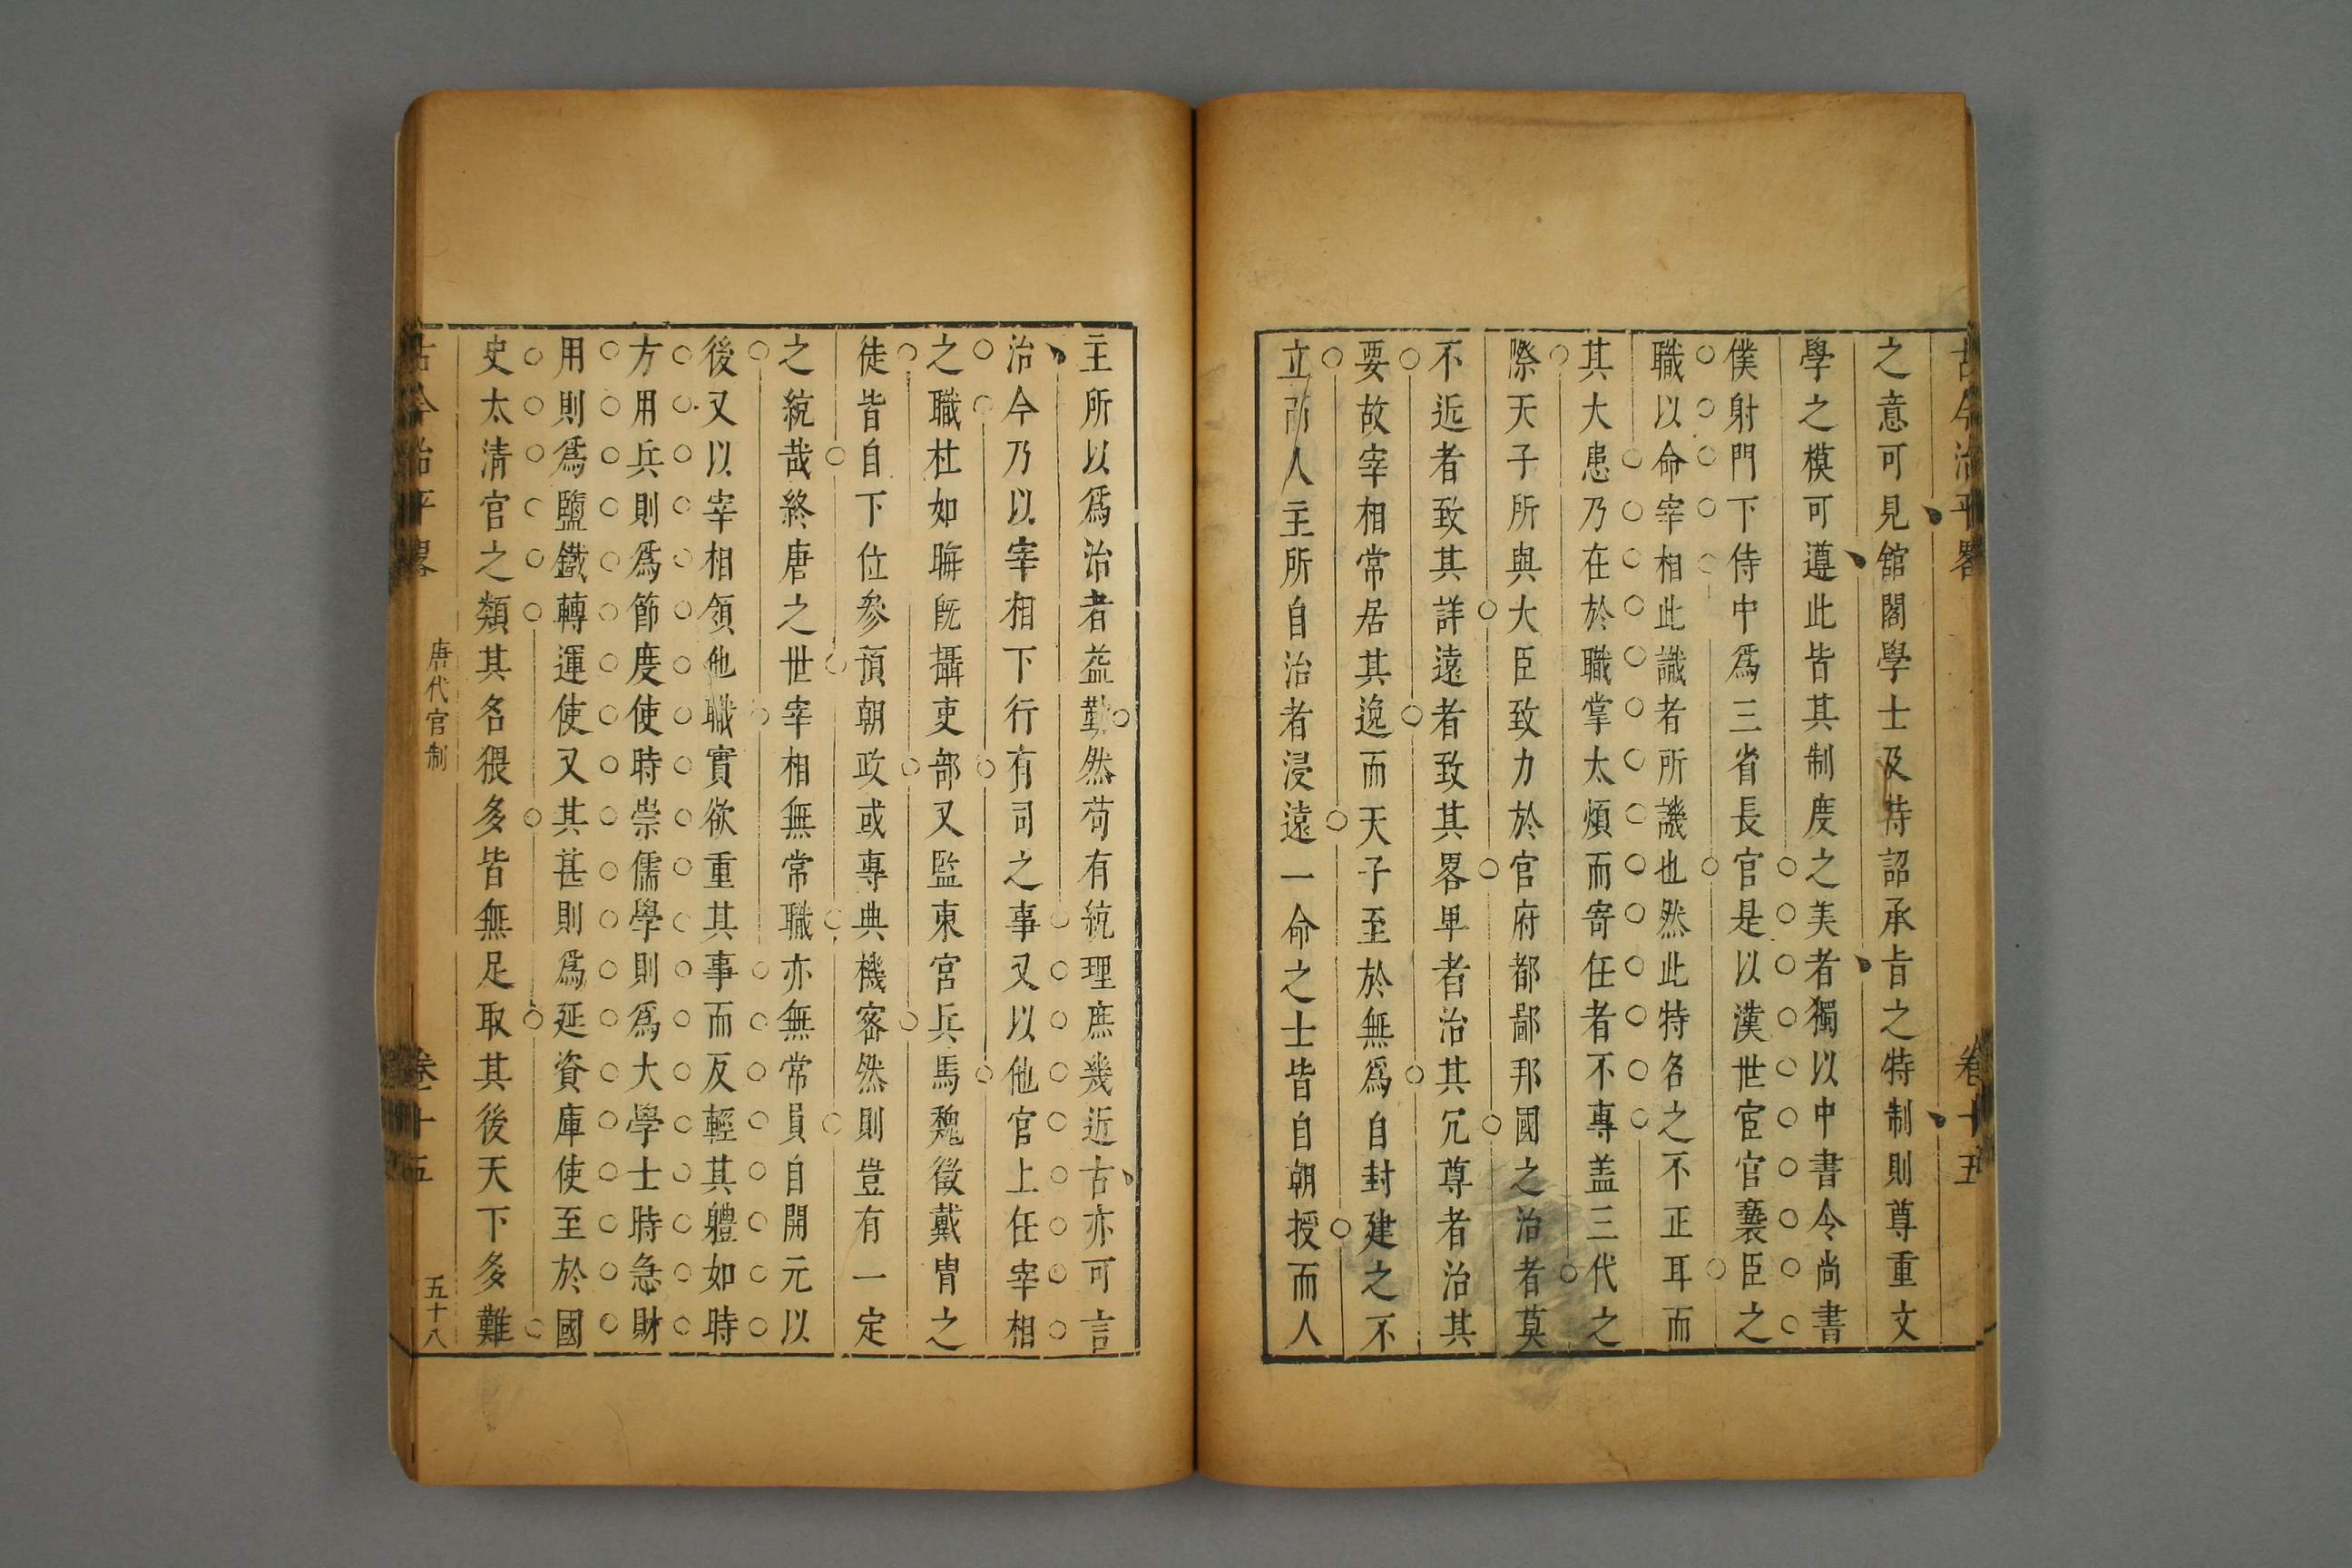 古今治平畧 卷十五
之意可見舘閣學士及待詔承旨之特制則尊重文
學之模可遵此皆其制度之美者獨以中書令尚書
僕射門下侍中爲三省長官是以漢世宦官褻臣之
職以命宰相此識者所譏也然此特各之不正耳而
其大患乃在於職掌太煩而寄任者不專盖三代之
際天子所與大臣致力於官府都鄙邦國之治者莫
不近者致其詳遠者致其畧卑者治其冗尊者治其
要故宰相常居其逸而天子至於無爲自封建之不
立而人主所自治者浸遠一命之士皆自朝授而人
主所以爲治者益勤然苟有統理庶幾近古亦可言
治今乃以宰相下行有司之事又以他官上任宰相
之職杜如晦既攝吏部又監東宮兵馬魏徵戴冑之
徒皆自下位參預朝政或專典機宻然則豈有一定
之統哉終唐之世宰相無常職亦無常員自開元以
後又以宰相領他職實欲重其事而反輕其軆如時
方用兵則爲節度使時崇儒學則爲大學士時急財
用則爲鹽鐵轉運使又其甚則爲延資庫使至於國
史太清官之類其名猥多皆無足取其後天下多難
古今治平畧 唐代官制 卷十五 五十八